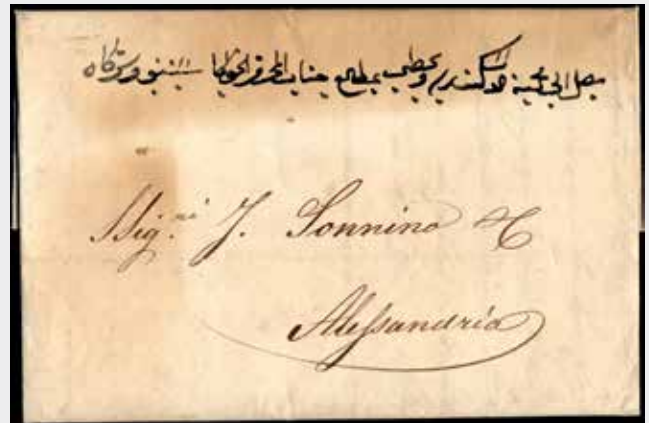 يصل الى مدينة الاسكندرية ويحظى بمطالعة جناب الخواجا سننينو وشركاه
Sig.ri J. Sonnino & C
Alessandria